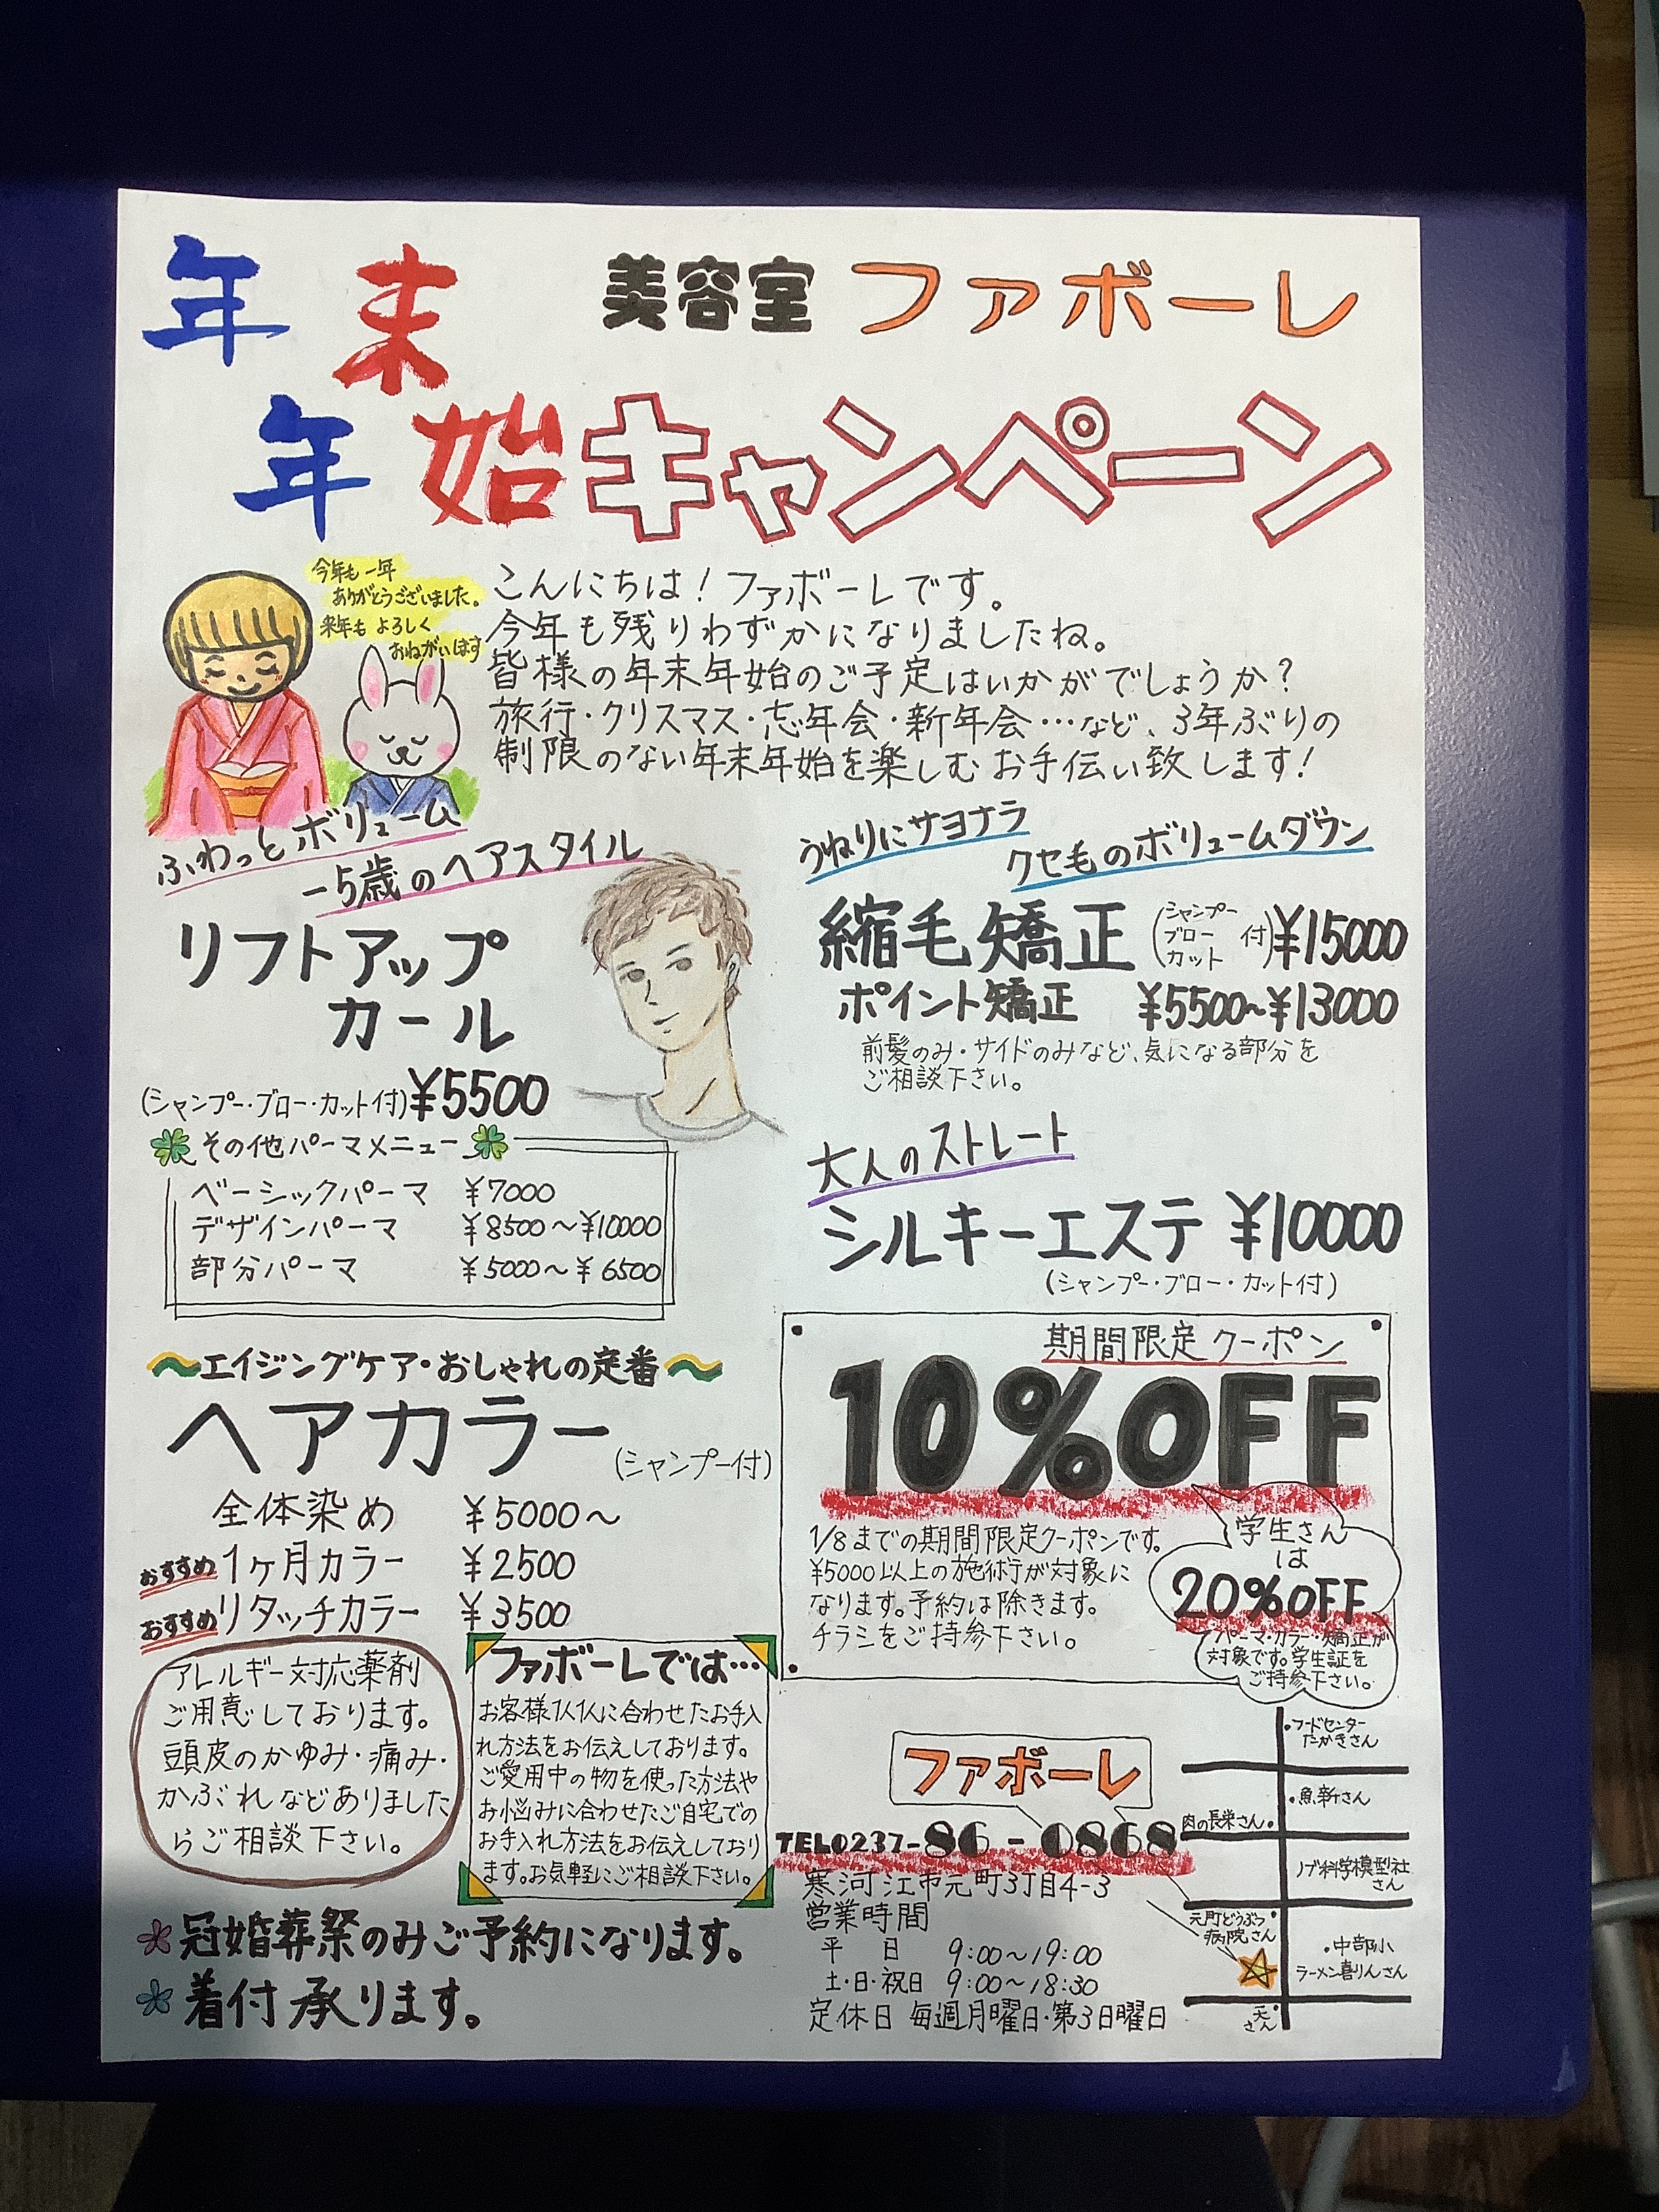 年末
年始キャンペーン
美容室 ファボーレ
今年も一年
ありがとうございました。
来年もよろしく
おねがいします
こんにちは！ファボーレです。
今年も残りわずかになりましたね。
皆様の年末年始のご予定はいかがでしょうか？
旅行・クリスマス・忘年会・新年会…など、3年ぶりの
制限のない年末年始を楽しむお手伝い致します！
ふわっとボリューム
-5歳のヘアスタイル
リフトアップ
カール
(シャンプー・ブロー・カット付)¥5500
その他パーマメニュー
ベーシックパーマ ¥7000
デザインパーマ ¥8500～¥10000
部分パーマ ¥5000～¥6500
うねりにサヨナラ
クセ毛のボリュームダウン
縮毛矯正(シャンプー ブロー カット 付)¥15000
ポイント矯正 ¥5500~¥13000
前髪のみ・サイドのみなど、気になる部分を
ご相談下さい。
大人のストレート
シルキーエステ ¥10000
(シャンプー・ブロー・カット付)
～エイジングケア・おしゃれの定番～
ヘアカラー(シャンプー付)
全体染め ¥5000～
おすすめ 1ヶ月カラー ¥2500
おすすめ リタッチカラー ¥3500
期間限定クーポン
10%OFF
1/8までの期間限定クーポンです。
¥5000以上の施術が対象に
なります。予約は除きます。
チラシをご持参下さい。
学生さん
は
20%OFF
パーマ・カラー・矯正が
対象です。学生証を
ご持参下さい。
アレルギー対応薬剤
ご用意しております。
頭皮のかゆみ・痛み・
かぶれなどありました
らご相談下さい。
ファボーレでは…
お客様1人1人に合わせたお手入
れ方法をお伝えしております。
ご愛用中の物を使った方法や
お悩みに合わせたご自宅での
お手入れ方法をお伝えしており
ます。お気軽にご相談下さい。
冠婚葬祭のみご予約になります。
着付承ります。
ファボーレ
TEL0237-86-0868
寒河江市元町3丁目4-3
営業時間
平 日 9:00～19:00
土・日・祝日 9:00～18:30
定休日 毎週月曜日・第3日曜日
・フードセンター
たかきさん
・魚新さん
肉の長栄さん・
ノブ科学模型社
さん
元町どうぶつ
病院さん
・中部小
ラーメン喜りんさん
天
さん